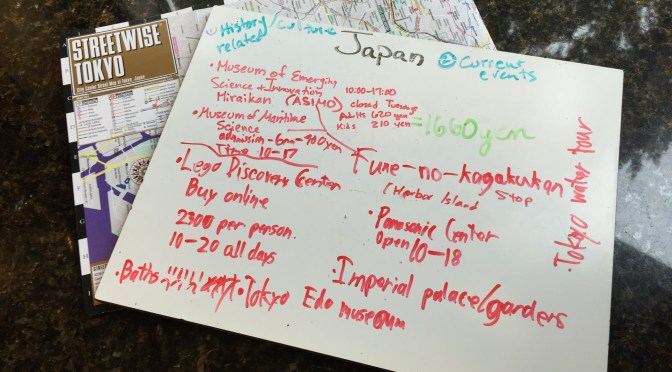 STREETWISE
TOKYO
City Center Street Map of Tokyo, Japan
STREETWISE
① History/culture
related
Japan
② Current
events
• Museum of Emerging
Science + Innovation
Miraikan (ASIMO)
10:00-17:00
closed Tuesday
Adults 620 yen
Kids 210 yen
=1660 yen
• Museum of Maritime
Science
admission - 6am-700yen
Time 10-17
Fune-no-kagakukan
(Harbor Island Stop
• Lego Discovery Center
Buy online
2300 per person.
10-20 all days
• Panasonic Center
Open 10-18
• Imperial palace/garders
• Baths
• Tokyo Edo museum
• Tokyo water tour